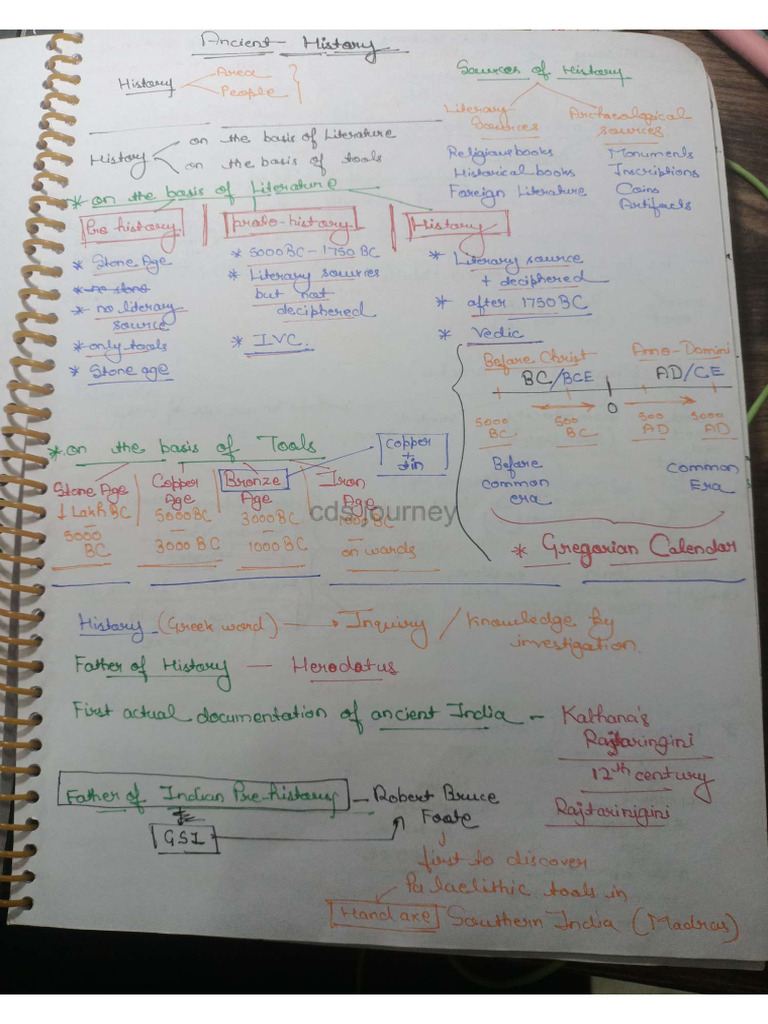 Ancient History
History
Area
People
Sources of History
Literary Sources
Archaeological sources
Religious books
Historical books
Foreign Literature
Monuments
Inscriptions
Coins
Artifacts
History
on the basis of Literature
on the basis of tools
* on the basis of Literature
Pre history
* Stone Age
* no stone
* no literary source
* only tools
* Stone age
proto-history
* 5000BC - 1750 BC
* Literary sources
but not
deciphered
* I.V.C.
History
* Literary source
+ deciphered
* after 1750BC
* Vedic
Before Christ
BC/BCE
Anno-Domini
AD/CE
0
5000 BC
500 BC
500 AD
5000 AD
Before common era
Common Era
* Gregorian Calendar
* on the basis of Tools
Copper + tin
Stone Age
1 Lakh BC
5000 BC
Copper Age
5000BC
3000 BC
Bronze Age
3000 BC
1000 BC
Iron Age
1000 BC
on wards
cdsjourney
History (Greek word) → Inquiry / Knowledge by
investigation.
Father of History — Herodotus
First actual documentation of ancient India - Kalhana's
Rajtaringini
12th century
Rajtarinigini
Father of Indian Pre-history — Robert Bruce
Foote
GSI
first to discover
Palaelithic tools in
Hand axe Southern India (Madras)